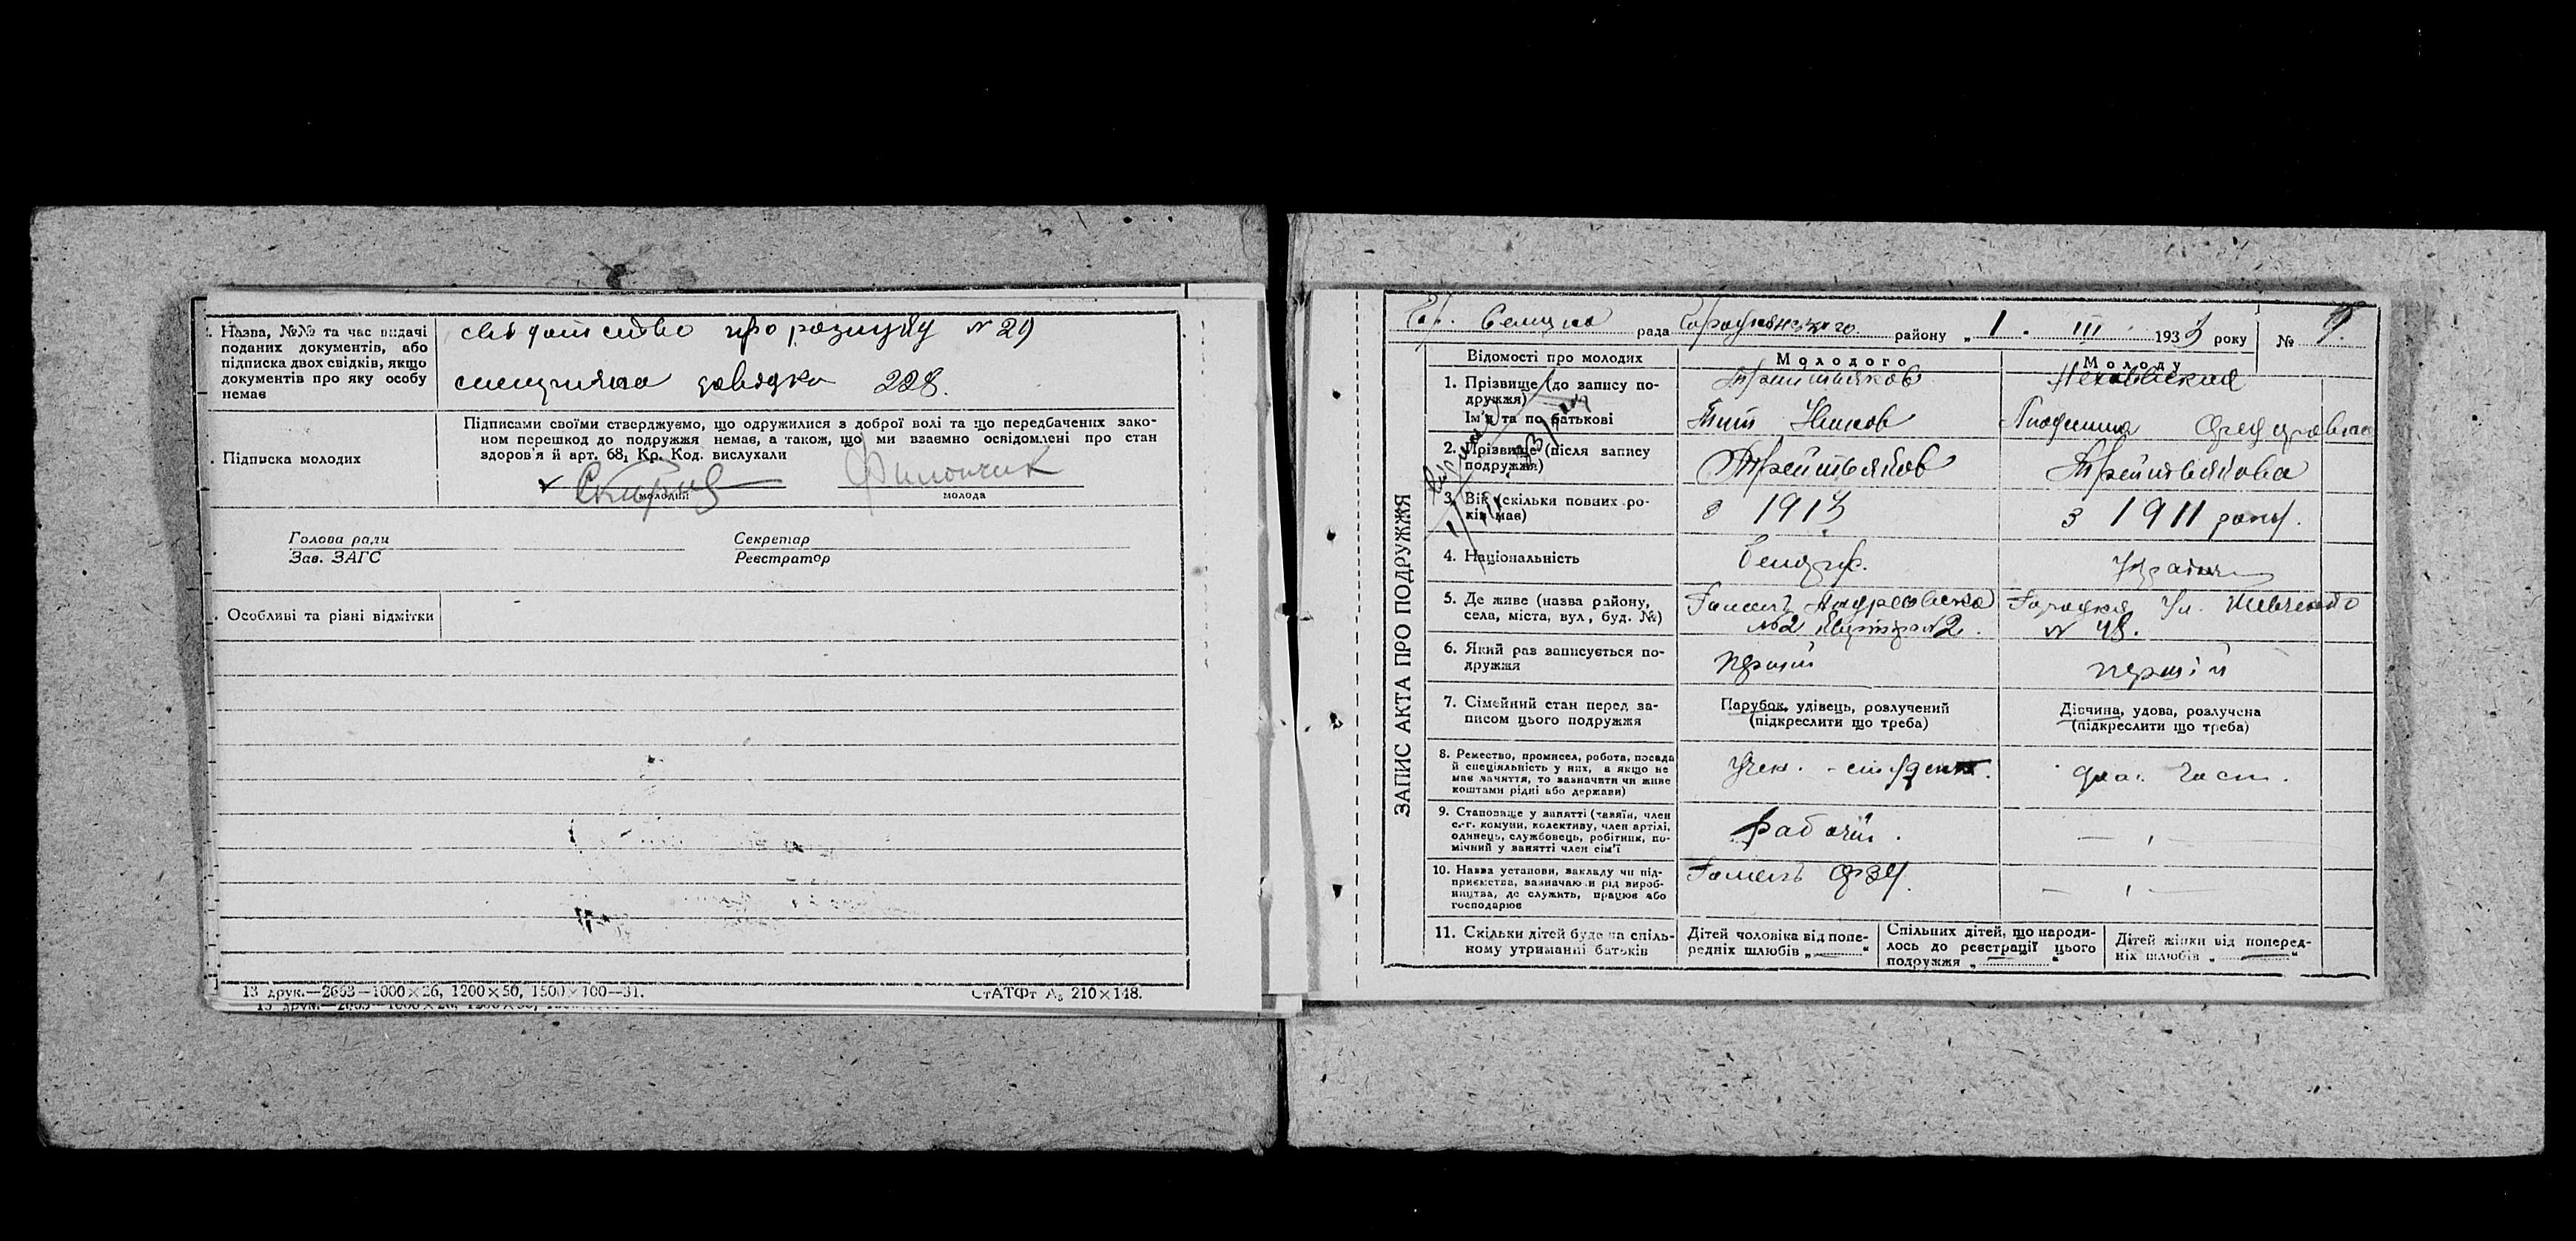 Назва, №№ та час видачі
поданих документів, або
підписка двох свідків, якщо
документів про яку особу
немає
свідотство про розлуку № 29
довідка 228.
Підписка молодих
Підписами своїми стверджуємо, що одружилися з доброї волі та що передбачених зако-
ном перешкод до подружжя немає, а також, що ми взаємно освідомлені про стан
здоров'я й арт. 68, Кр. Код. вислухали
молодий
молода
Голова ради
Зав. ЗАГС
Секретар
Реєстратор
Особливі та різні відмітки
13 друк.—2663—1000×26, 1200×50, 1500×100—31.
СтАТФт А₅ 210×148.
ЗАПИС АКТА ПРО ПОДРУЖЖЯ
рада району „1 - III 1933 року №
Відомості про молодих
Молодого
Молоду
1. Прізвище (до запису по-
дружжя)
Ім'я та по батькові
Третьяков
Тит
Людмила
2. Прізвище (після запису
подружжя)
Третьяков
Третьякова
3. Вік (скільки повних ро-
ків має)
з 1913
з 1911 року.
4. Національність
Україн
5. Де живе (назва району,
села, міста, вул, буд. №)
Гомель
№2
Городня Ул. Шевченко
№ 48.
6. Який раз записується по-
дружжя
перший
перший
7. Сімейний стан перед за-
писом цього подружжя
Парубок, удівець, розлучений
(підкреслити що треба)
Дівчина, удова, розлучена
(підкреслити що треба)
8. Ремество, промисел, робота, посада
й спеціяльність у них, а якщо не
має заняття, то зазначити чи живе
коштами рідні або держави)
Учен. - студент.
дом. Госп.
9. Становище у занятті (хазяїн, член
с.-г. комуни, колективу, член артілі,
одинець, службовець, робітник, по-
мічний у занятті член сім'ї
рабочий.
10. Назва установи, закладу чи під-
приємства, зазначаючи рід вироб-
ництва, де служить, працює або
господарює
Гомель ФЗУ.
11. Скільки дітей буде на спіль-
ному утриманні батьків
Дітей чоловіка від попе-
редніх шлюбів „ — “
Спільних дітей, що народи-
лось до реєстрації цього
подружжя „ — “
Дітей жінки від поперед-
ніх шлюбів „ — “